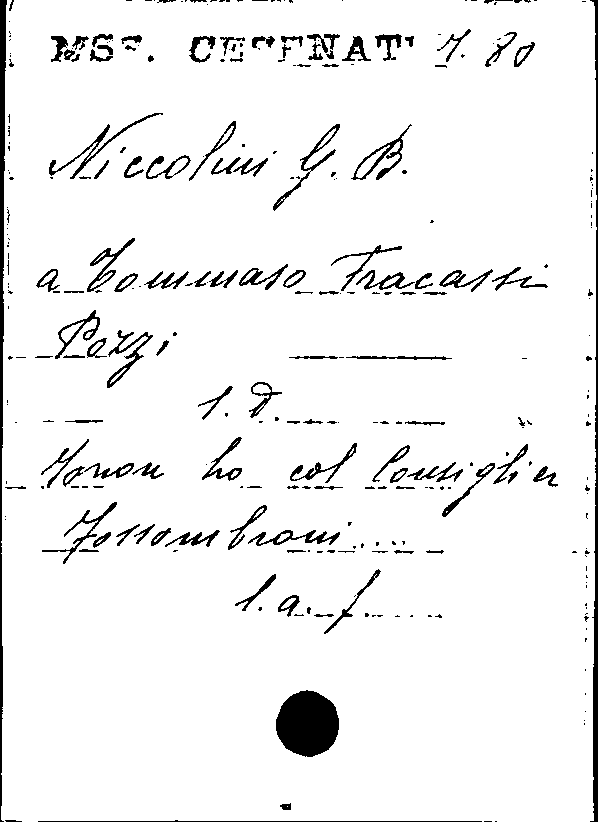 MSS. CESENATI 7. 80
Niccolini G. B.
a Tommaso Fracassi
Pozzi
s. d.
Io non ho col Consiglier
Fossombroni....
l. a. f.